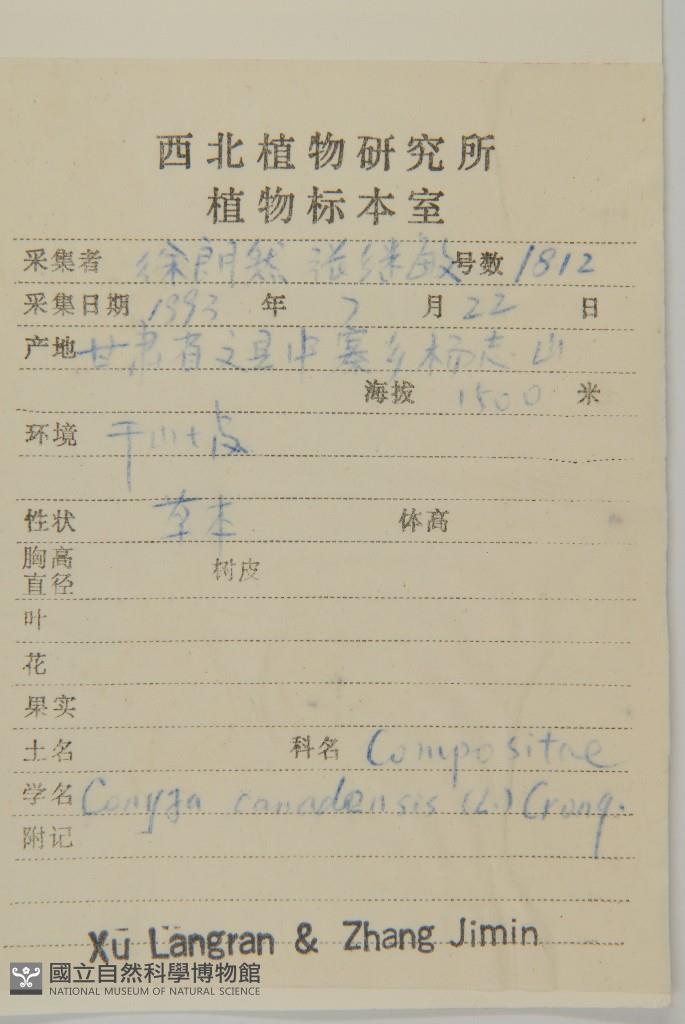 西北植物研究所
植物标本室
采集者 徐朗然 张继敏 号数 1812
采集日期 1993 年 7 月 22 日
产地 甘肃省文县中寨乡杨志山
海拔 1500 米
环境 干山坡
性状 草本 体高
胸高直径 树皮
叶
花
果实
土名 科名 Compositae
学名 Conyza canadensis (L.) Cronq.
附记
Xu Langran & Zhang Jimin
國立自然科學博物館
NATIONAL MUSEUM OF NATURAL SCIENCE